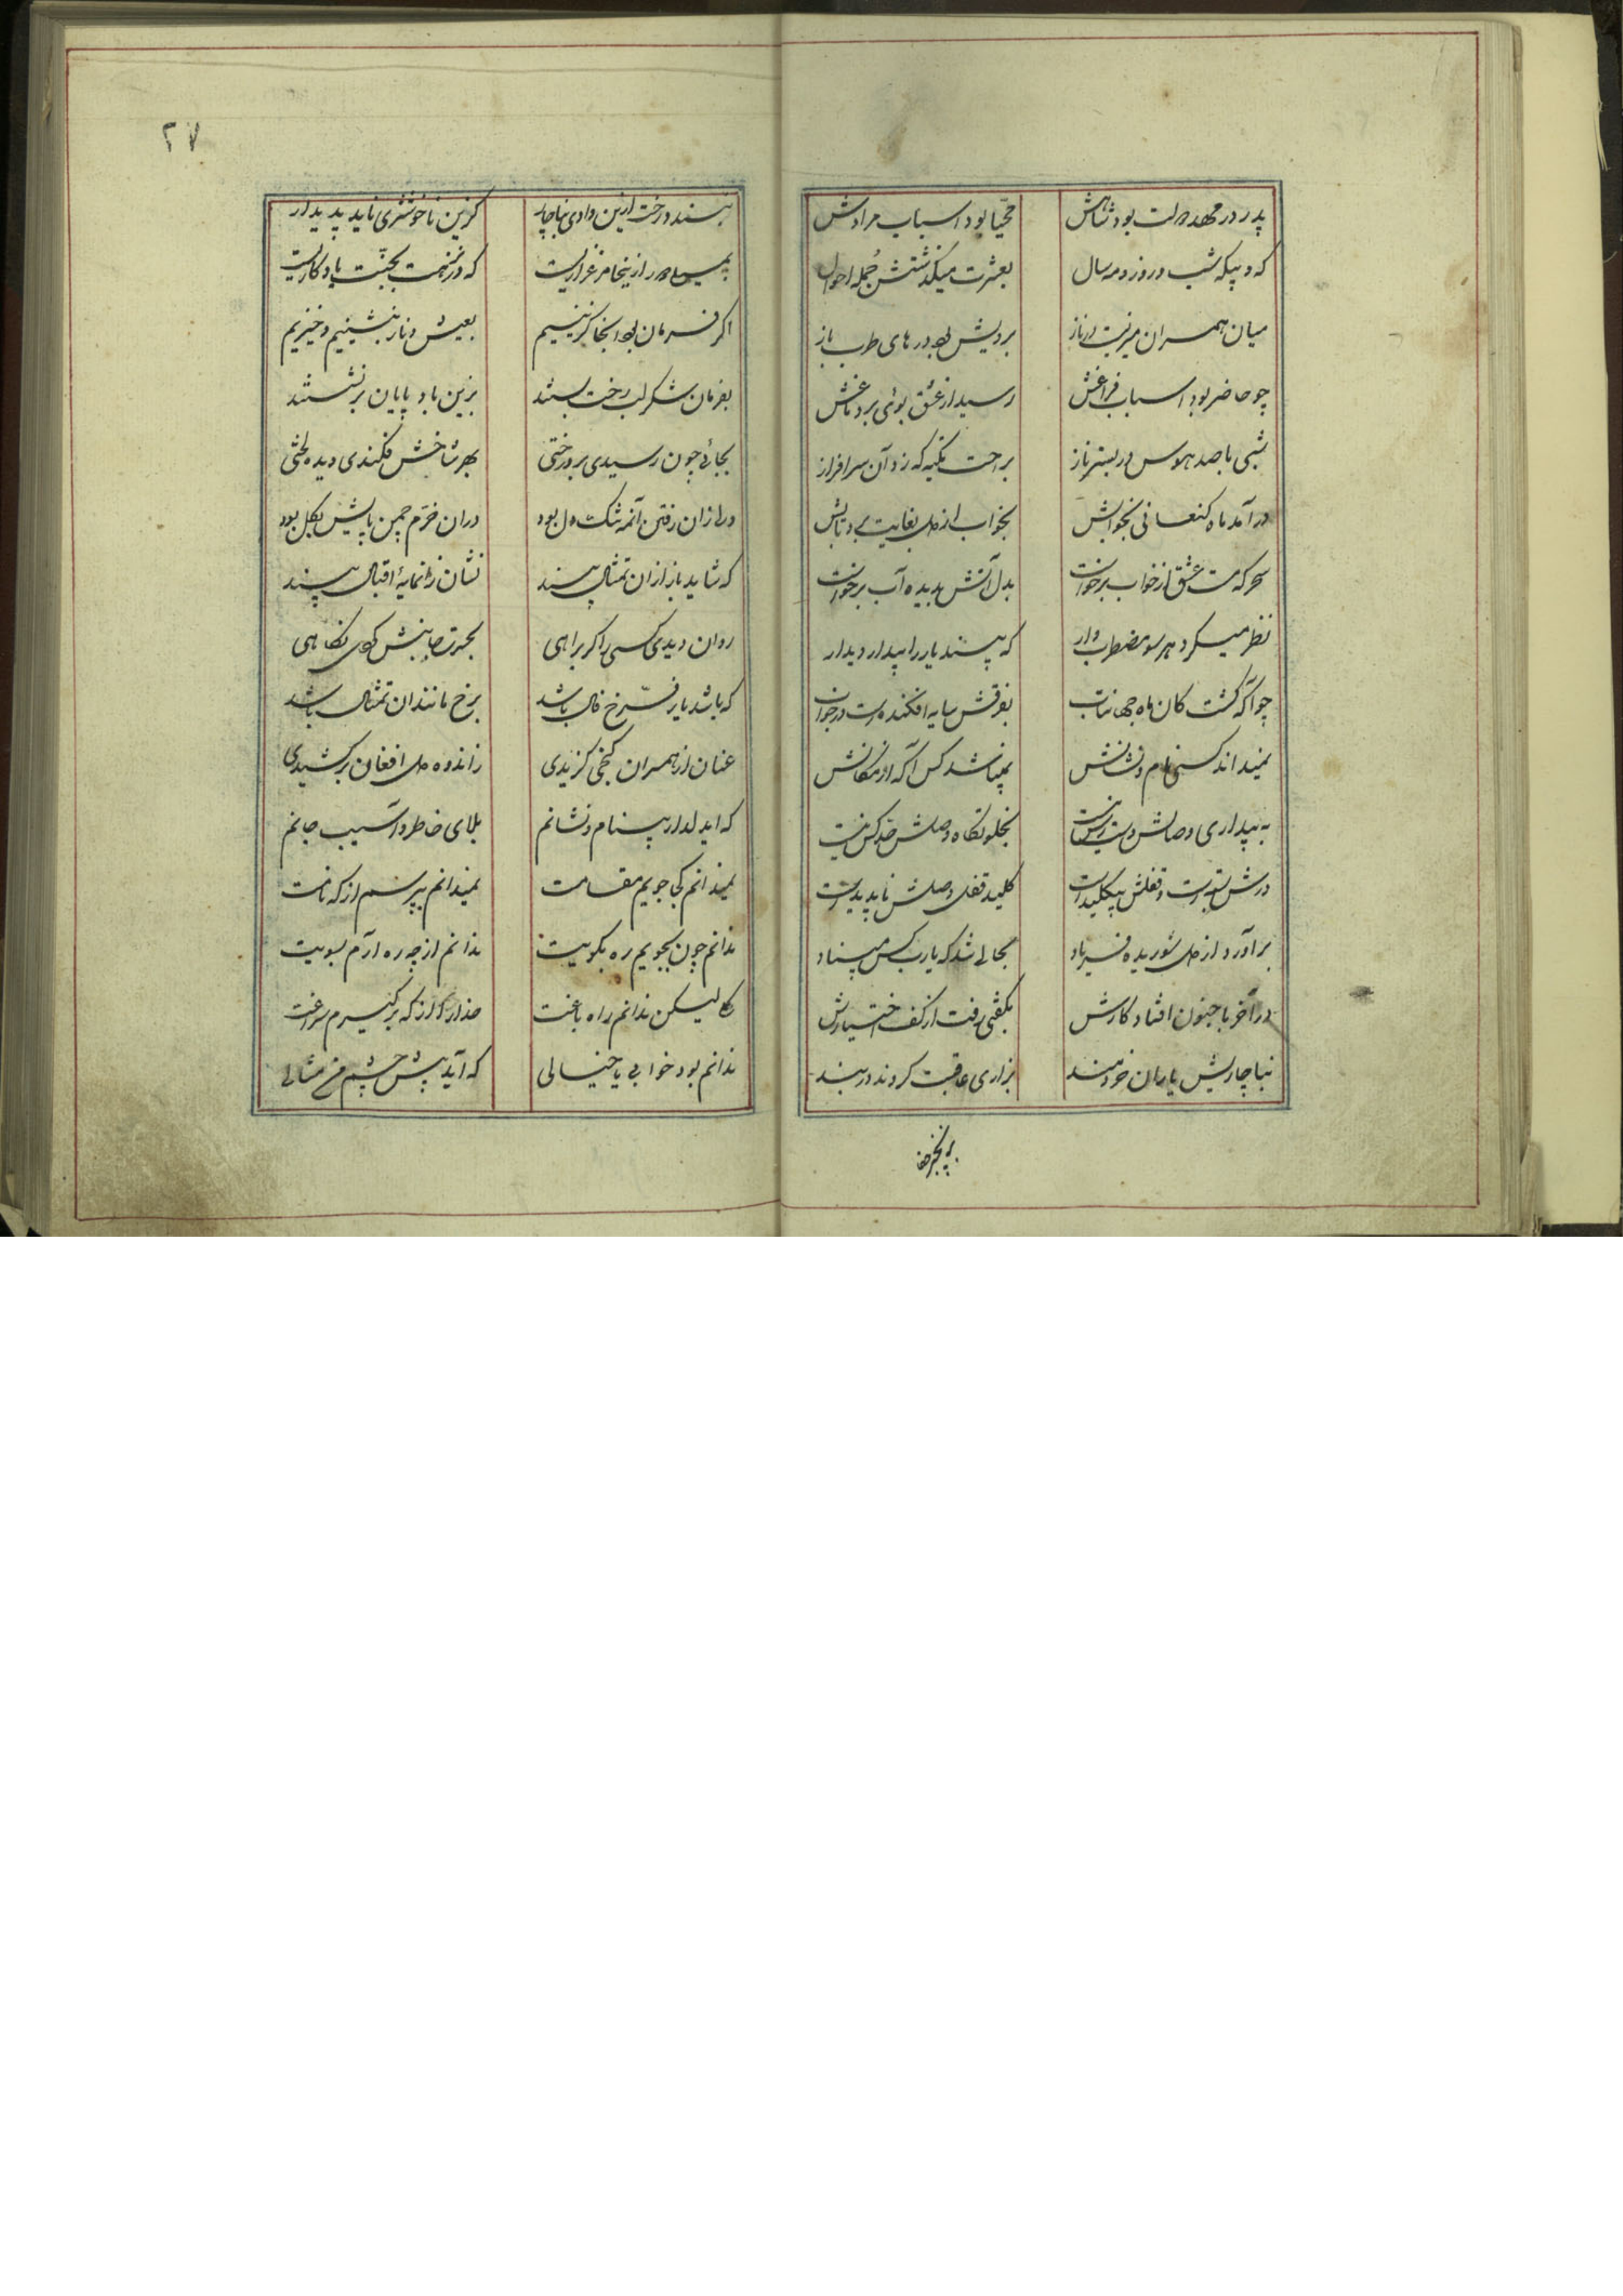 ۲۷
پدر در مهد دولت بود شاهش مهیا بود اسباب مرادش
که و بیکه شب و روز و مه و سال بعشرت میکذشتش جمله احوال
میان همسران میزیست در ناز برویش بود درهای طرب باز
چو حاضر بود اسباب فراغش رسید از عشق بوئی بر دماغش
شبی با صد هوس در بستر ناز براحت تکیه که زد آن سرافراز
درآمد ماه کنعانی بخوابش بخواب از دل بغایت برد تابش
سحرکه مست عشق از خواب برخواست بدل آتش بدیده آب برخواست
نظر میکرد هر سو مضطرب وار که بیند یار را بیدار دیدار
چو آکه کشت کان ماه جهانتاب بفرقش سایه افکنده است در خواب
نمیداند کسی نام و نشانش نمیباشد کس آکه از مکانش
به بیداری وصالش دسترس نیست بخلوتکاه وصلش حد کس نیست
درش بسته است و قفلش بیکلید است کلید قفل وصلش ناپدید است
برآورد از دل شوریده فریاد بحالی شد که یارب کس مبیناد
در آخر با جنون افتاد کارش بکفتی رفت از کف اختیارش
بناچاریش یاران خردمند بزاری عاقبت کردند در بند
ببند رخت ازین وادی بناچار کزین ناخوشتری ناید پدیدار
اکر فرمان بود آنجا کریزیم بعیش و ناز بنشینیم و خیزیم
بفرمان شکر لب رخت بستند بزین باد پایان برنشستند
بجائی چون رسیدی بر درختی بهر شاخش فکندی دیده لختی
در ان خرم چمن پایش بکل بود
که شاید باز ازان تمثال بیند نشان زانمایهٔ اقبال بیند
روان دیدی کسی را کر براهی بحسرت جانبش کردی نکاهی
که باشد یار فرخ فال باشد برخ مانند ان تمثال باشد
عنان از همسران کنجی کزیدی ز اندوه دل افغان برکشیدی
که ای دلدار بینام و نشانم بلای خاطر و آسیب جانم
نمیدانم کجا جویم مقامت نمیدانم بپرسم از که نامت
ندانم چون بجویم ره بکویت ندانم از چه ره آرم بسویت
لیکن ندانم راه باغت ندارم کز که برکیرم سراغت
ندانم بود خوابی یا خیالی که آید پیش چشمم مثالی